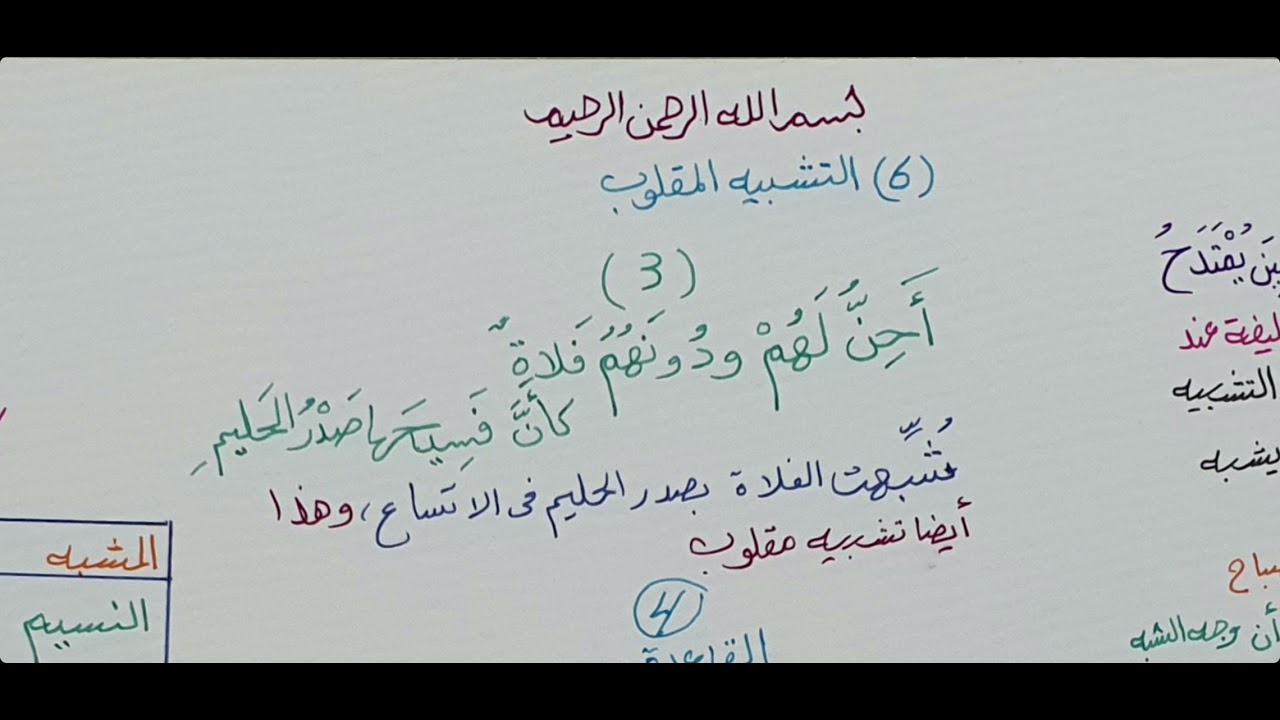 بسم الله الرحمن الرحيم
(6) التشبيه المقلوب
(3)
أَحِنُّ لَهُمْ ودُونَهُمُ فَلاةٌ
كأنَّ فَسِيحَها صَدْرُ الحَليمِ
شُبِّهت الفلاة بصدر الحليم فى الاتساع، وهذا
أيضا تشبيه مقلوب
4
القاعدة
يُمْتَدَحُ
عند
التشبيه
يشبه
أن وجه الشبه
المشبه
النسيم